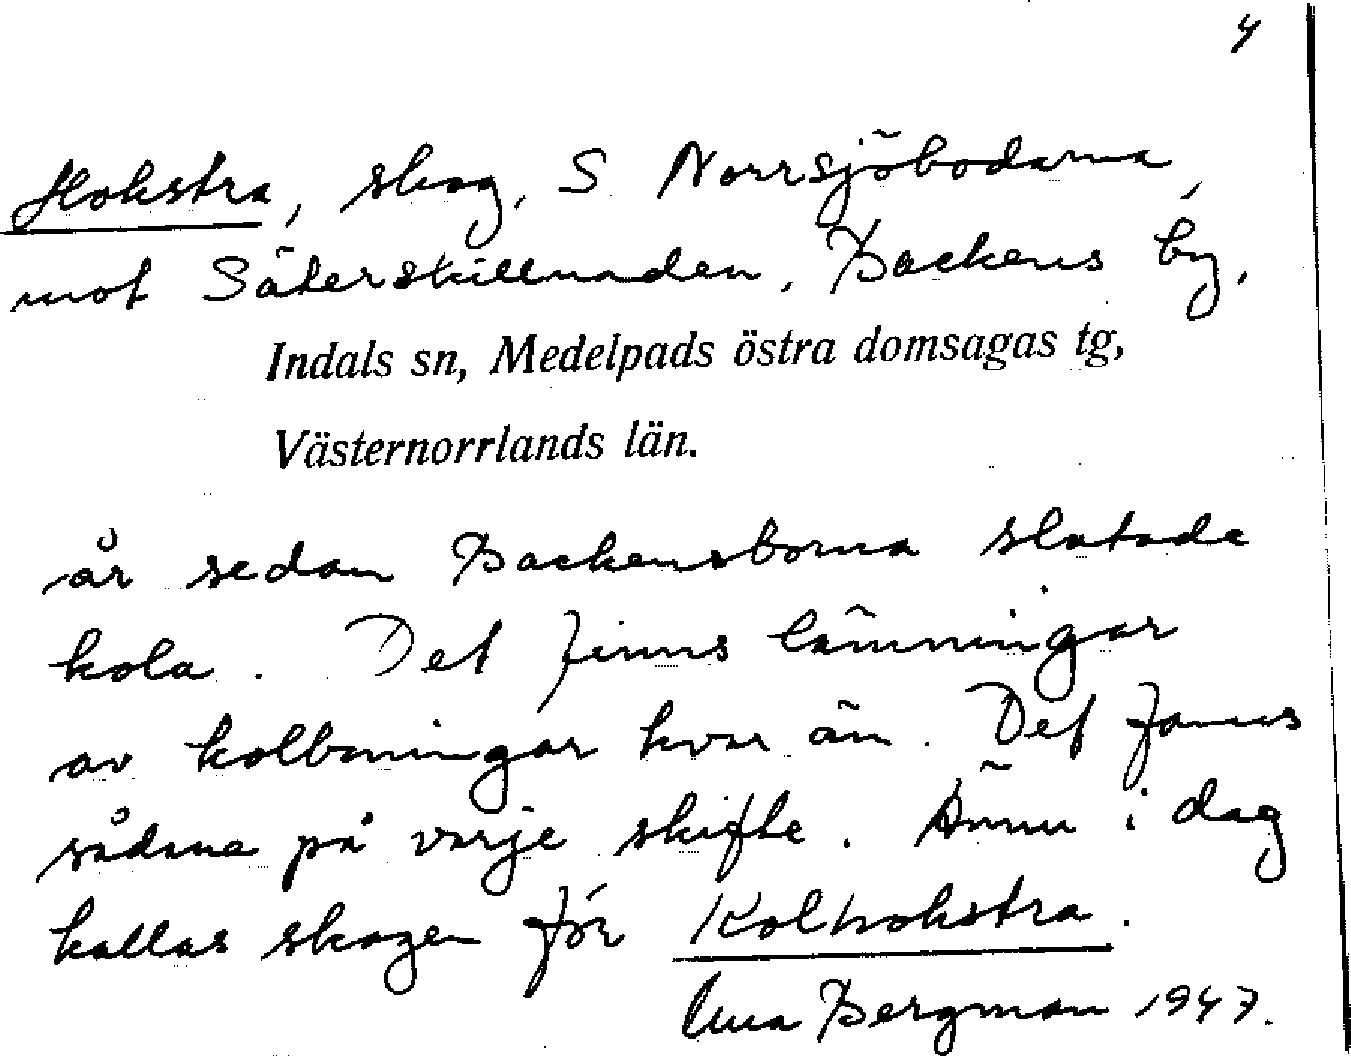 4
Hokstra, skog, S Norrsjöbodarna,
mot Säterskillnaden, Backens by,
Indals sn, Medelpads östra domsagas tg,
Västernorrlands län.
år sedan Backensborna slutade
kola. Det finns lämningar
av kolbningar kvar än. Det fanns
sådana på varje skifte. Ännu i dag
kallas skogen för Kolhokstra.
Bergman 1947.